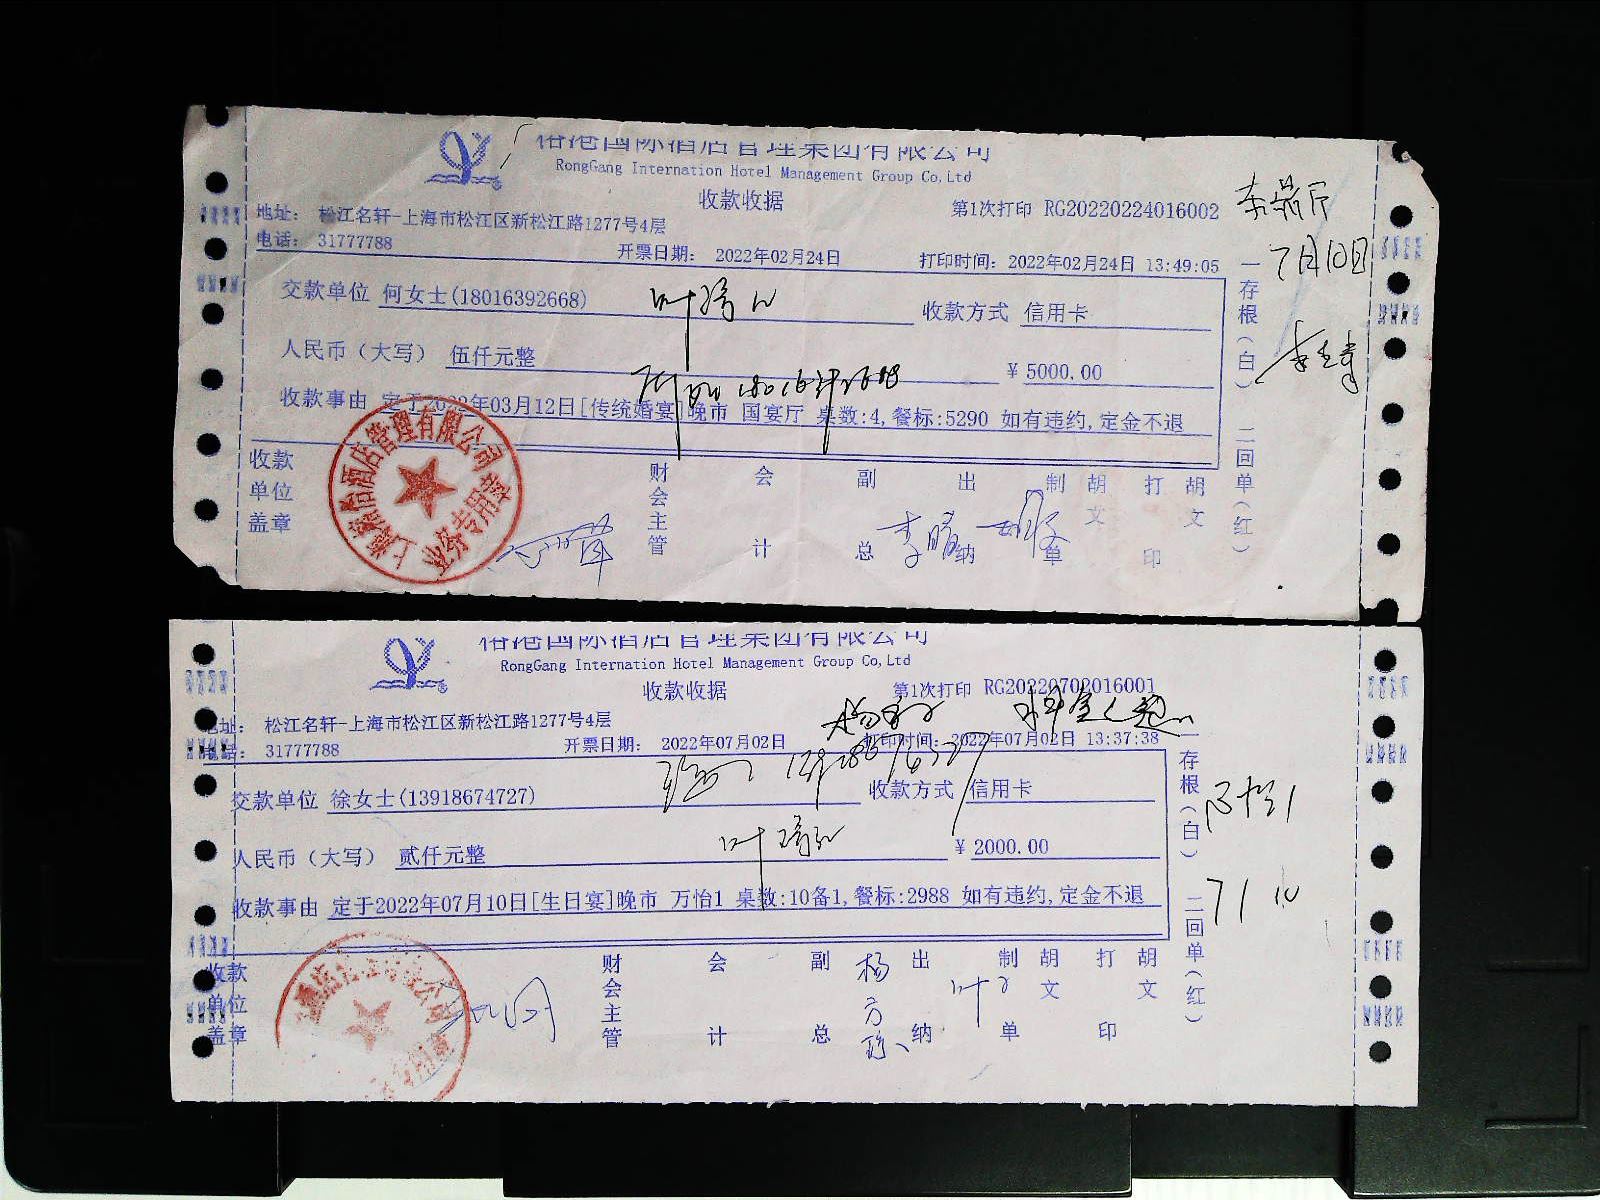 国际酒店管理集团有限公司
RongGang Internation Hotel Management Group Co,Ltd
收款收据
第1次打印 RG20220224016002
地址: 松江名轩-上海市松江区新松江路1277号4层
电话: 31777788
开票日期: 2022年02月24日
打印时间: 2022年02月24日 13:49:05
7月10日
交款单位 何女士(18016392668)
收款方式 信用卡
人民币(大写) 伍仟元整
¥ 5000.00
收款事由 定于2022年03月12日[传统婚宴]晚市 国宴厅 桌数:4,餐标:5290 如有违约,定金不退
一存根(白) 二回单(红)
收款单位盖章
财会主管
会计
副总
出纳
制单
胡文
打印
胡文
酒店管理有限公司
业务专用章
李晴
国际酒店管理集团有限公司
RongGang Internation Hotel Management Group Co,Ltd
收款收据
第1次打印 RG20220702016001
地址: 松江名轩-上海市松江区新松江路1277号4层
电话: 31777788
开票日期: 2022年07月02日
打印时间: 2022年07月02日 13:37:38
交款单位 徐女士(13918674727)
收款方式 信用卡
人民币(大写) 贰仟元整
¥ 2000.00
收款事由 定于2022年07月10日[生日宴]晚市 万怡1 桌数:10备1,餐标:2988 如有违约,定金不退
一存根(白) 二回单(红)
收款单位盖章
财会主管
会计
副总
出纳
制单
胡文
打印
胡文